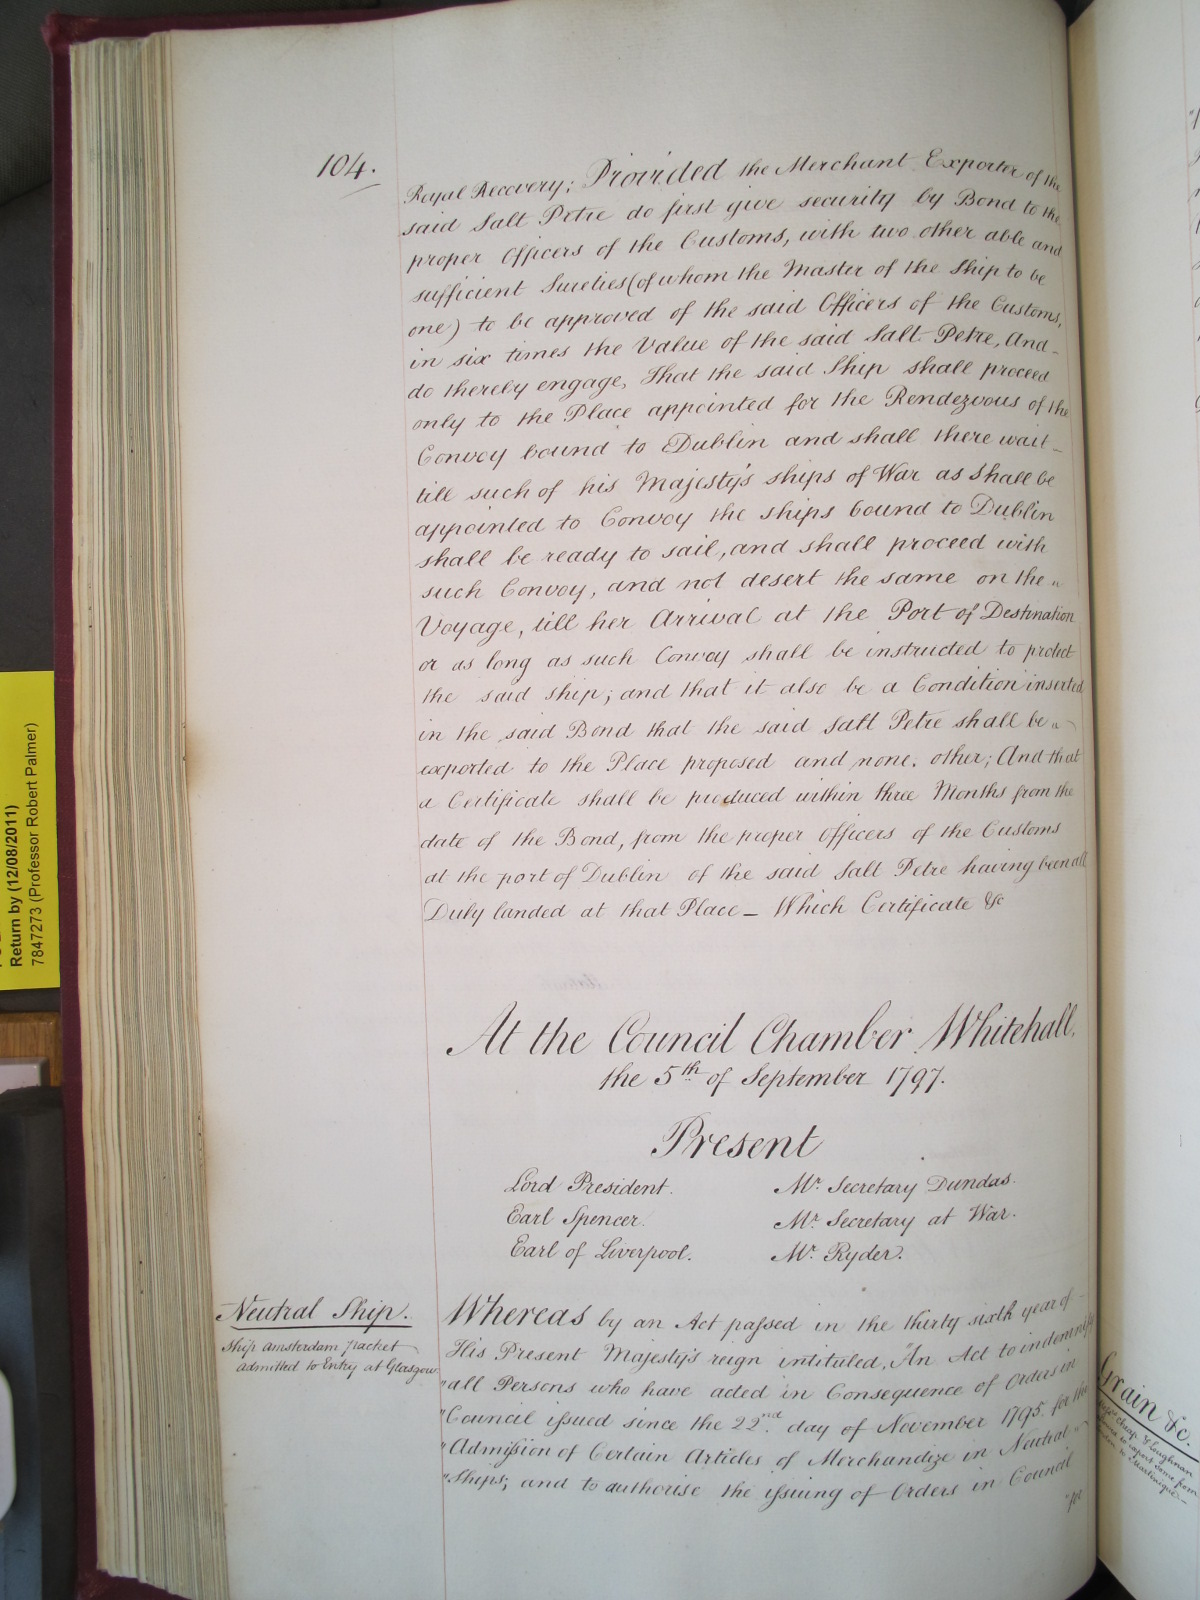 104.
Royal Recovery; Provided the Merchant Exporter of the
said Salt Petre do first give security by Bond to the
proper Officers of the Customs, with two other able and
sufficient Sureties (of whom the Master of the Ship to be
one) to be approved of the said Officers of the Customs,
in six times the Value of the said Salt Petre, And
do thereby engage, That the said Ship shall proceed
only to the Place appointed for the Rendezvous of the
Convoy bound to Dublin and shall there wait
till such of his Majesty's ships of War as shall be
appointed to Convoy the ships bound to Dublin
shall be ready to sail, and shall proceed with
such Convoy, and not desert the same on the
Voyage, till her Arrival at the Port of Destination
or as long as such Convoy shall be instructed to protect
the said ship; and that it also be a Condition inserted
in the said Bond that the said Salt Petre shall be
exported to the Place proposed and none other; And that
a Certificate shall be produced within three Months from the
date of the Bond, from the proper Officers of the Customs
at the port of Dublin of the said Salt Petre having been all
Duly landed at that Place _ Which Certificate &c
At the Council Chamber Whitehall,
the 5th of September 1797.
Present
Lord President. Mr. Secretary Dundas.
Earl Spencer. Mr. Secretary at War.
Earl of Liverpool. Mr. Ryder.
Neutral Ship.
Ship Amsterdam Packet
admitted to Entry at Glasgow
Whereas by an Act passed in the thirty sixth year of
His Present Majesty's reign intituled, "An Act to indemnify
"all Persons who have acted in Consequence of Orders in
"Council issued since the 22nd. day of November 1795. for the
"Admission of Certain Articles of Merchandize in Neutral
"Ships; and to authorise the issuing of Orders in Council
"for
Grain &c.
Return by (12/08/2011)
7847273 (Professor Robert Palmer)